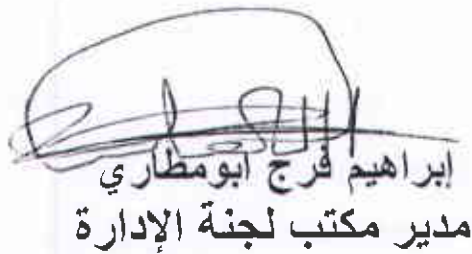 إبراهيم فرج ابومطاري
مدير مكتب لجنة الإدارة